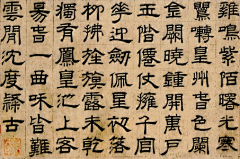 雞鳴紫陌曙光寒
鶯囀皇州旾色闌
金闕曉鐘開萬戶
玉階僊仗擁千官
華迎劍佩星初落
柳拂旌旗露未乾
獨有鳳皇池上客
昜旾一曲咊皆難
雲間沈度古